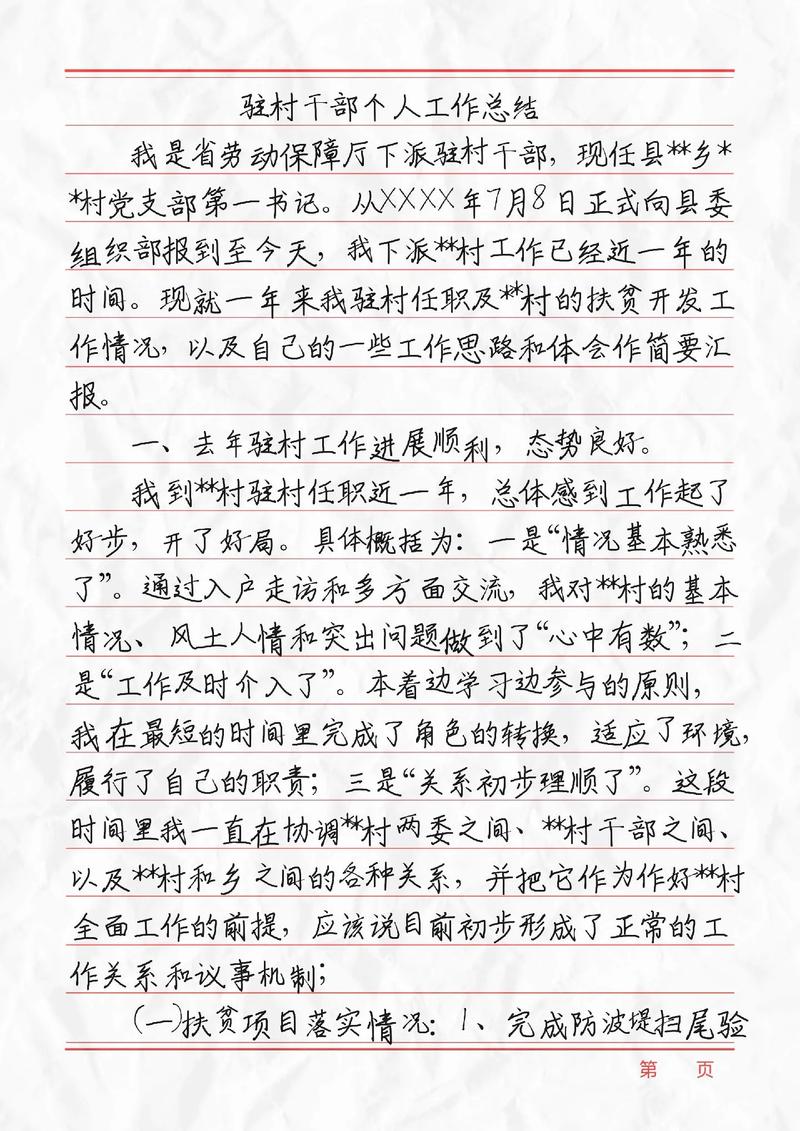 驻村干部个人工作总结
我是省劳动保障厅下派驻村干部，现任县**乡*
*村党支部第一书记。从XXXX年7月8日正式向县委
组织部报到至今天，我下派**村工作已经近一年的
时间。现就一年来我驻村任职及**村的扶贫开发工
作情况，以及自己的一些工作思路和体会作简要汇
报。
一、去年驻村工作进展顺利，态势良好。
我到**村驻村任职近一年，总体感到工作起了
好步，开了好局。具体概括为：一是“情况基本熟悉
了”。通过入户走访和多方面交流，我对**村的基本
情况、风土人情和突出问题做到了“心中有数”；二
是“工作及时介入了”。本着边学习边参与的原则，
我在最短的时间里完成了角色的转换，适应了环境，
履行了自己的职责；三是“关系初步理顺了”。这段
时间里我一直在协调**村两委之间、**村干部之间、
以及**村和乡之间的各种关系，并把它作为作好**村
全面工作的前提，应该说目前初步形成了正常的工
作关系和议事机制；
(一)扶贫项目落实情况：1、完成防波堤扫尾验
第 页